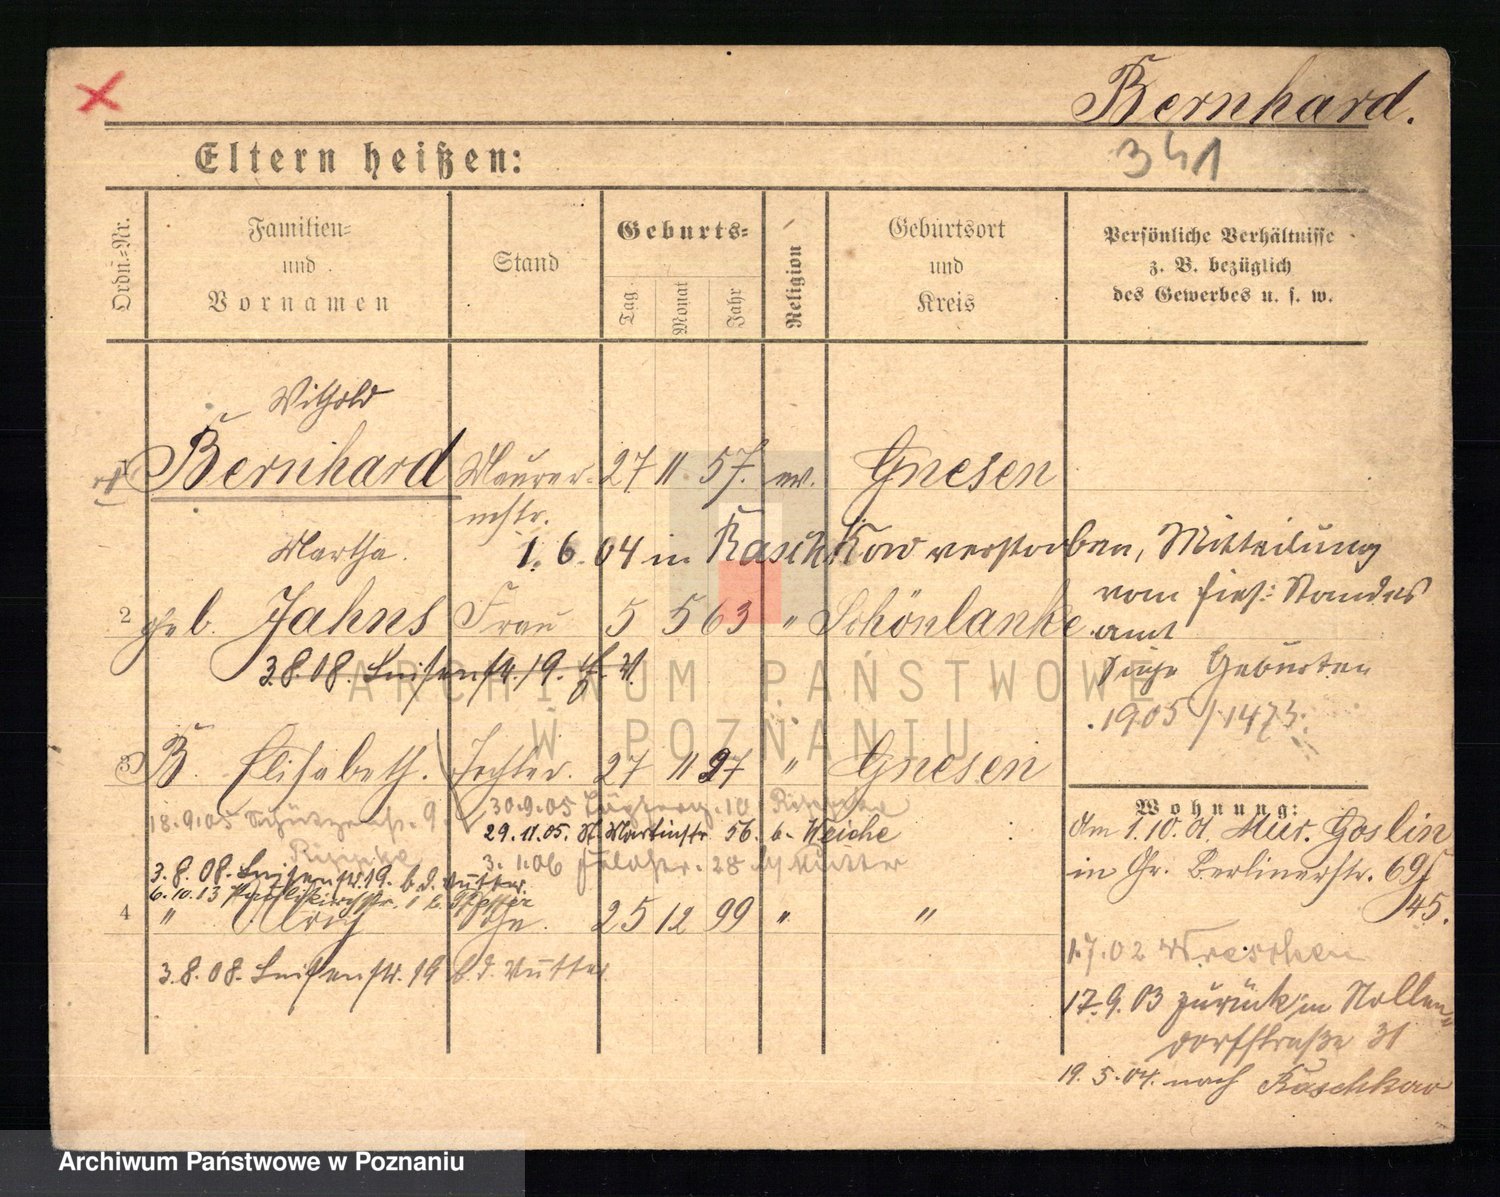 Bernhard.
341
Eltern heißen:
Ordn.-Nr.
Familien-
und
Vornamen
Stand
Geburts-
Tag
Monat
Jahr
Religion
Geburtsort
und
Kreis
Persönliche Verhältnisse
z. B. bezüglich
des Gewerbes u. s. w.
Withold
1 Bernhard Maurer- 27 11 57. ev. Gnesen
mstr.
Martha. 1. 6. 04 in Raschkow verstorben, Mitteilung
vom hies. Standes
2 geb. Jahns Frau 5 5 63 " Schönlanke
amt
3.8.08. Luisenstr. 19.
Geburten
1905/1473.
3 B. Elisabeth. Tochter. 27 11 97 " Gnesen
Wohnung:
18.9.05 Schützenstr. 9.
30.9.05
29.11.05. St. Martinstr. 56. b. Weiche
3.1.06 28
3.8.08. Luisenstr. 19. b. d. Mutter.
6.10.13 Paulikirchstr. 1 b.
4 " Ulrich Sohn. 25 12 99 " "
3.8.08. Luisenstr. 19 b. d. Mutter
Am 1.10.01 Mur. Goslin
in Gr. Berlinerstr. 69/
45.
1.7.02 Wreschen
17.9.03 zurück in Nollen-
dorfstraße 31
19.5.04. nach Raschkow
ARCHIWUM PAŃSTWOWE
W POZNANIU
Archiwum Państwowe w Poznaniu